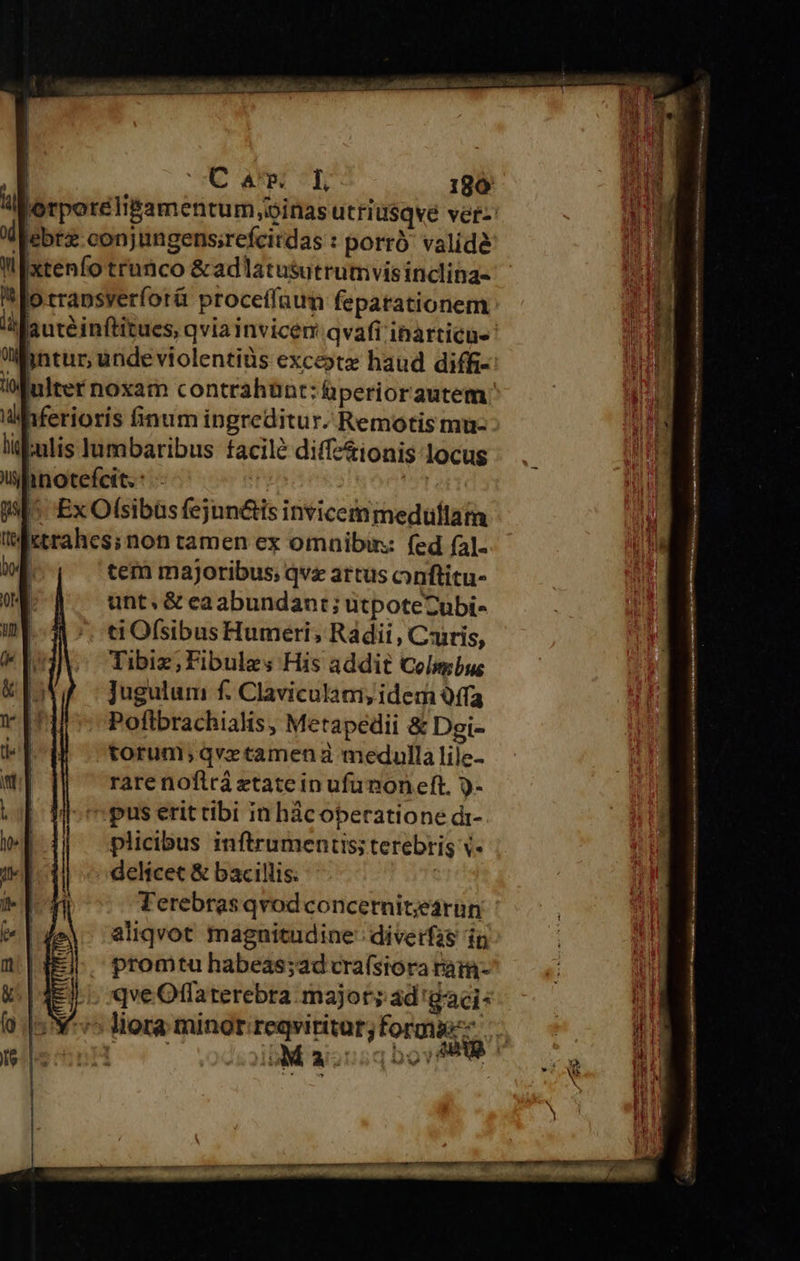 CAP. I, 180
corpore ligamentum, binas utriusqve ver-
tebræ conjungens, reſcindas: porrò validè
extenſo trunco & ad latus utrumvis inclina-
to transverſorū proceſſuum ſeparationem
cautè inſtitues, qvia invicem qvaſi inarticu-
antur, unde violentiùs exceptæ haud diffi-
culter noxam contrahunt: ſuperior autem
inferioris ſinum ingreditur. Remotis mu-
ſculis lumbaribus facilè diſſectionis locus
innoteſcit.
Ex Oſsibus ſejunctis invicem medullam
extrahes; non tamen ex omnibus: ſed ſal-
tem majoribus, qvæ artus conſtitu-
unt, & ea abundant; utpote Cubi-
ti Oſsibus Humeri, Radii, Cruris,
Tibiæ, Fibulæ; His addit Columbus
Jugulum ſ. Claviculam, idem Oſſa
Poſtbrachialis, Metapedii & Dgi-
torum, qvæ tamen à medulla lile-
rare noſtrá ætate in uſu non eſt. O-
pus erit tibi in hâc operatione du-
plicibus inſtrumentis; terebris v-
delicet & bacillis.
Terebras qvod concernit; earun
aliqvot magnitudine diverſas in
promtu habeas; ad craſsiora nam-
qve Oſſa terebra major; ad graci-
liora minor reqviritur; formæ
M